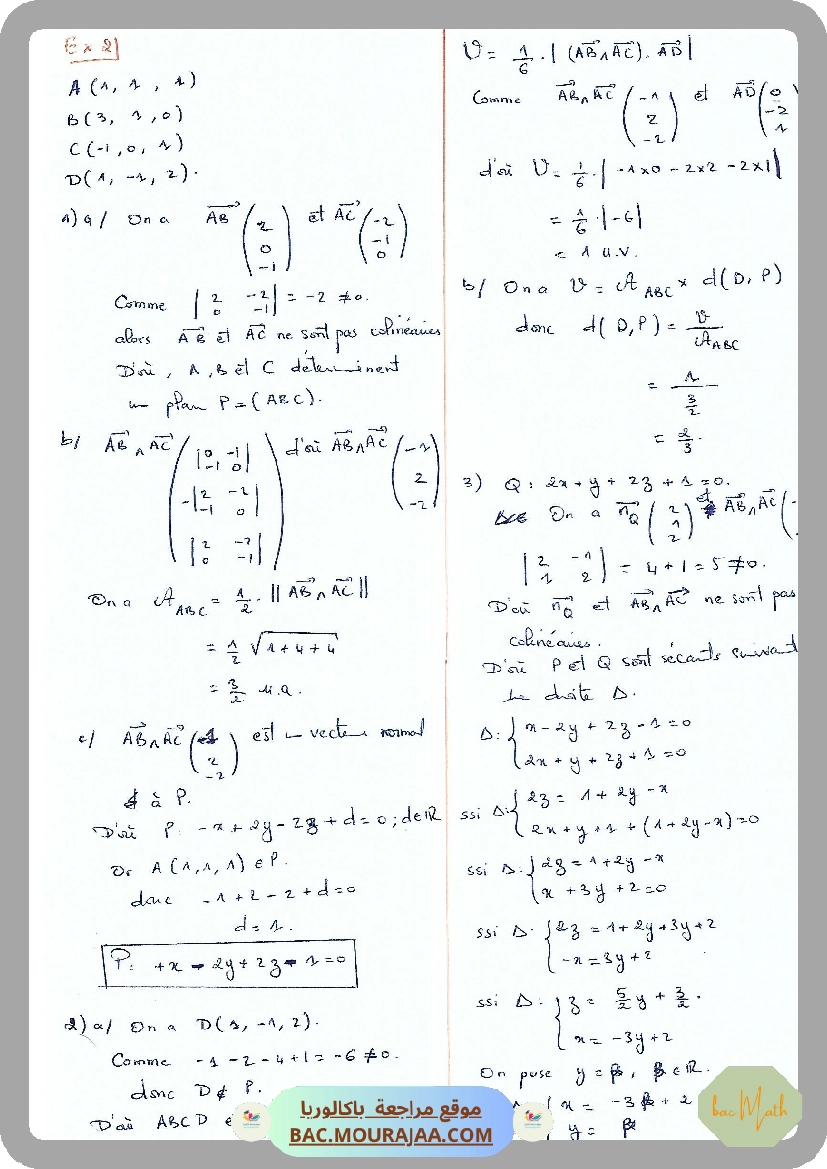 Ex 2
A (1, 1, 1)
B (3, 1, 0)
C (-1, 0, 1)
D (1, -1, 2).
1) a/ On a AB→ (2 0 -1) et AC→ (-2 -1 0)
Comme |2 -2 0 -1| = -2 ≠ 0.
alors AB→ et AC→ ne sont pas colinéaires
D'où, A, B et C déterminent
un plan P = (ABC).
b/ AB→ ∧ AC→ (|0 -1 -1 0| -|2 -2 -1 0| |2 -2 0 -1|) d'où AB→∧AC→ (-1 2 -2)
On a A_ABC = 1/2 . || AB→∧AC→ ||
= 1/2 √1+4+4
= 3/2 u.a.
c/ AB→∧AC→ (-1 2 -2) est un vecteur normal
à P.
D'où P: -x + 2y - 2z + d = 0 ; d∈IR
Or A (1, 1, 1) ∈ P.
donc -1 + 2 - 2 + d = 0
d = 1.
P: +x - 2y + 2z - 1 = 0
2) a/ On a D(1, -1, 2).
Comme -1 - 2 - 4 + 1 = -6 ≠ 0.
donc D ∉ P.
D'où ABCD
V = 1/6 . | (AB→∧AC→) . AD→ |
Comme AB→∧AC→ (-1 2 -2) et AD→ (0 -2 1
d'où V = 1/6 . | -1×0 - 2×2 - 2×1 |
= 1/6 . |-6|
= 1 u.v.
b/ On a V = A_ABC × d(D, P)
donc d(D, P) = V/A_ABC
= 1/(3/2)
= 2/3.
3) Q: 2x + y + 2z + 1 = 0.
On a n_Q→ (2 1 2) et AB→∧AC→ (
|2 -1 1 2| = 4 + 1 = 5 ≠ 0.
D'où n_Q→ et AB→∧AC→ ne sont pas
colinéaires.
D'où P et Q sont sécants suivant
une droite Δ.
Δ: { x - 2y + 2z - 1 = 0
2x + y + 2z + 1 = 0
ssi Δ: { 2z = 1 + 2y - x
2x + y + 1 + (1 + 2y - x) = 0
ssi Δ: { 2z = 1 + 2y - x
x + 3y + 2 = 0
ssi Δ: { 2z = 1 + 2y + 3y + 2
-x = 3y + 2
ssi Δ: { z = 5/2 y + 3/2.
x = -3y + 2
On pose y = β, β ∈ IR.
x = -3β + 2
y = β
bac Math
موقع مراجعة باكالوريا
BAC.MOURAJAA.COM